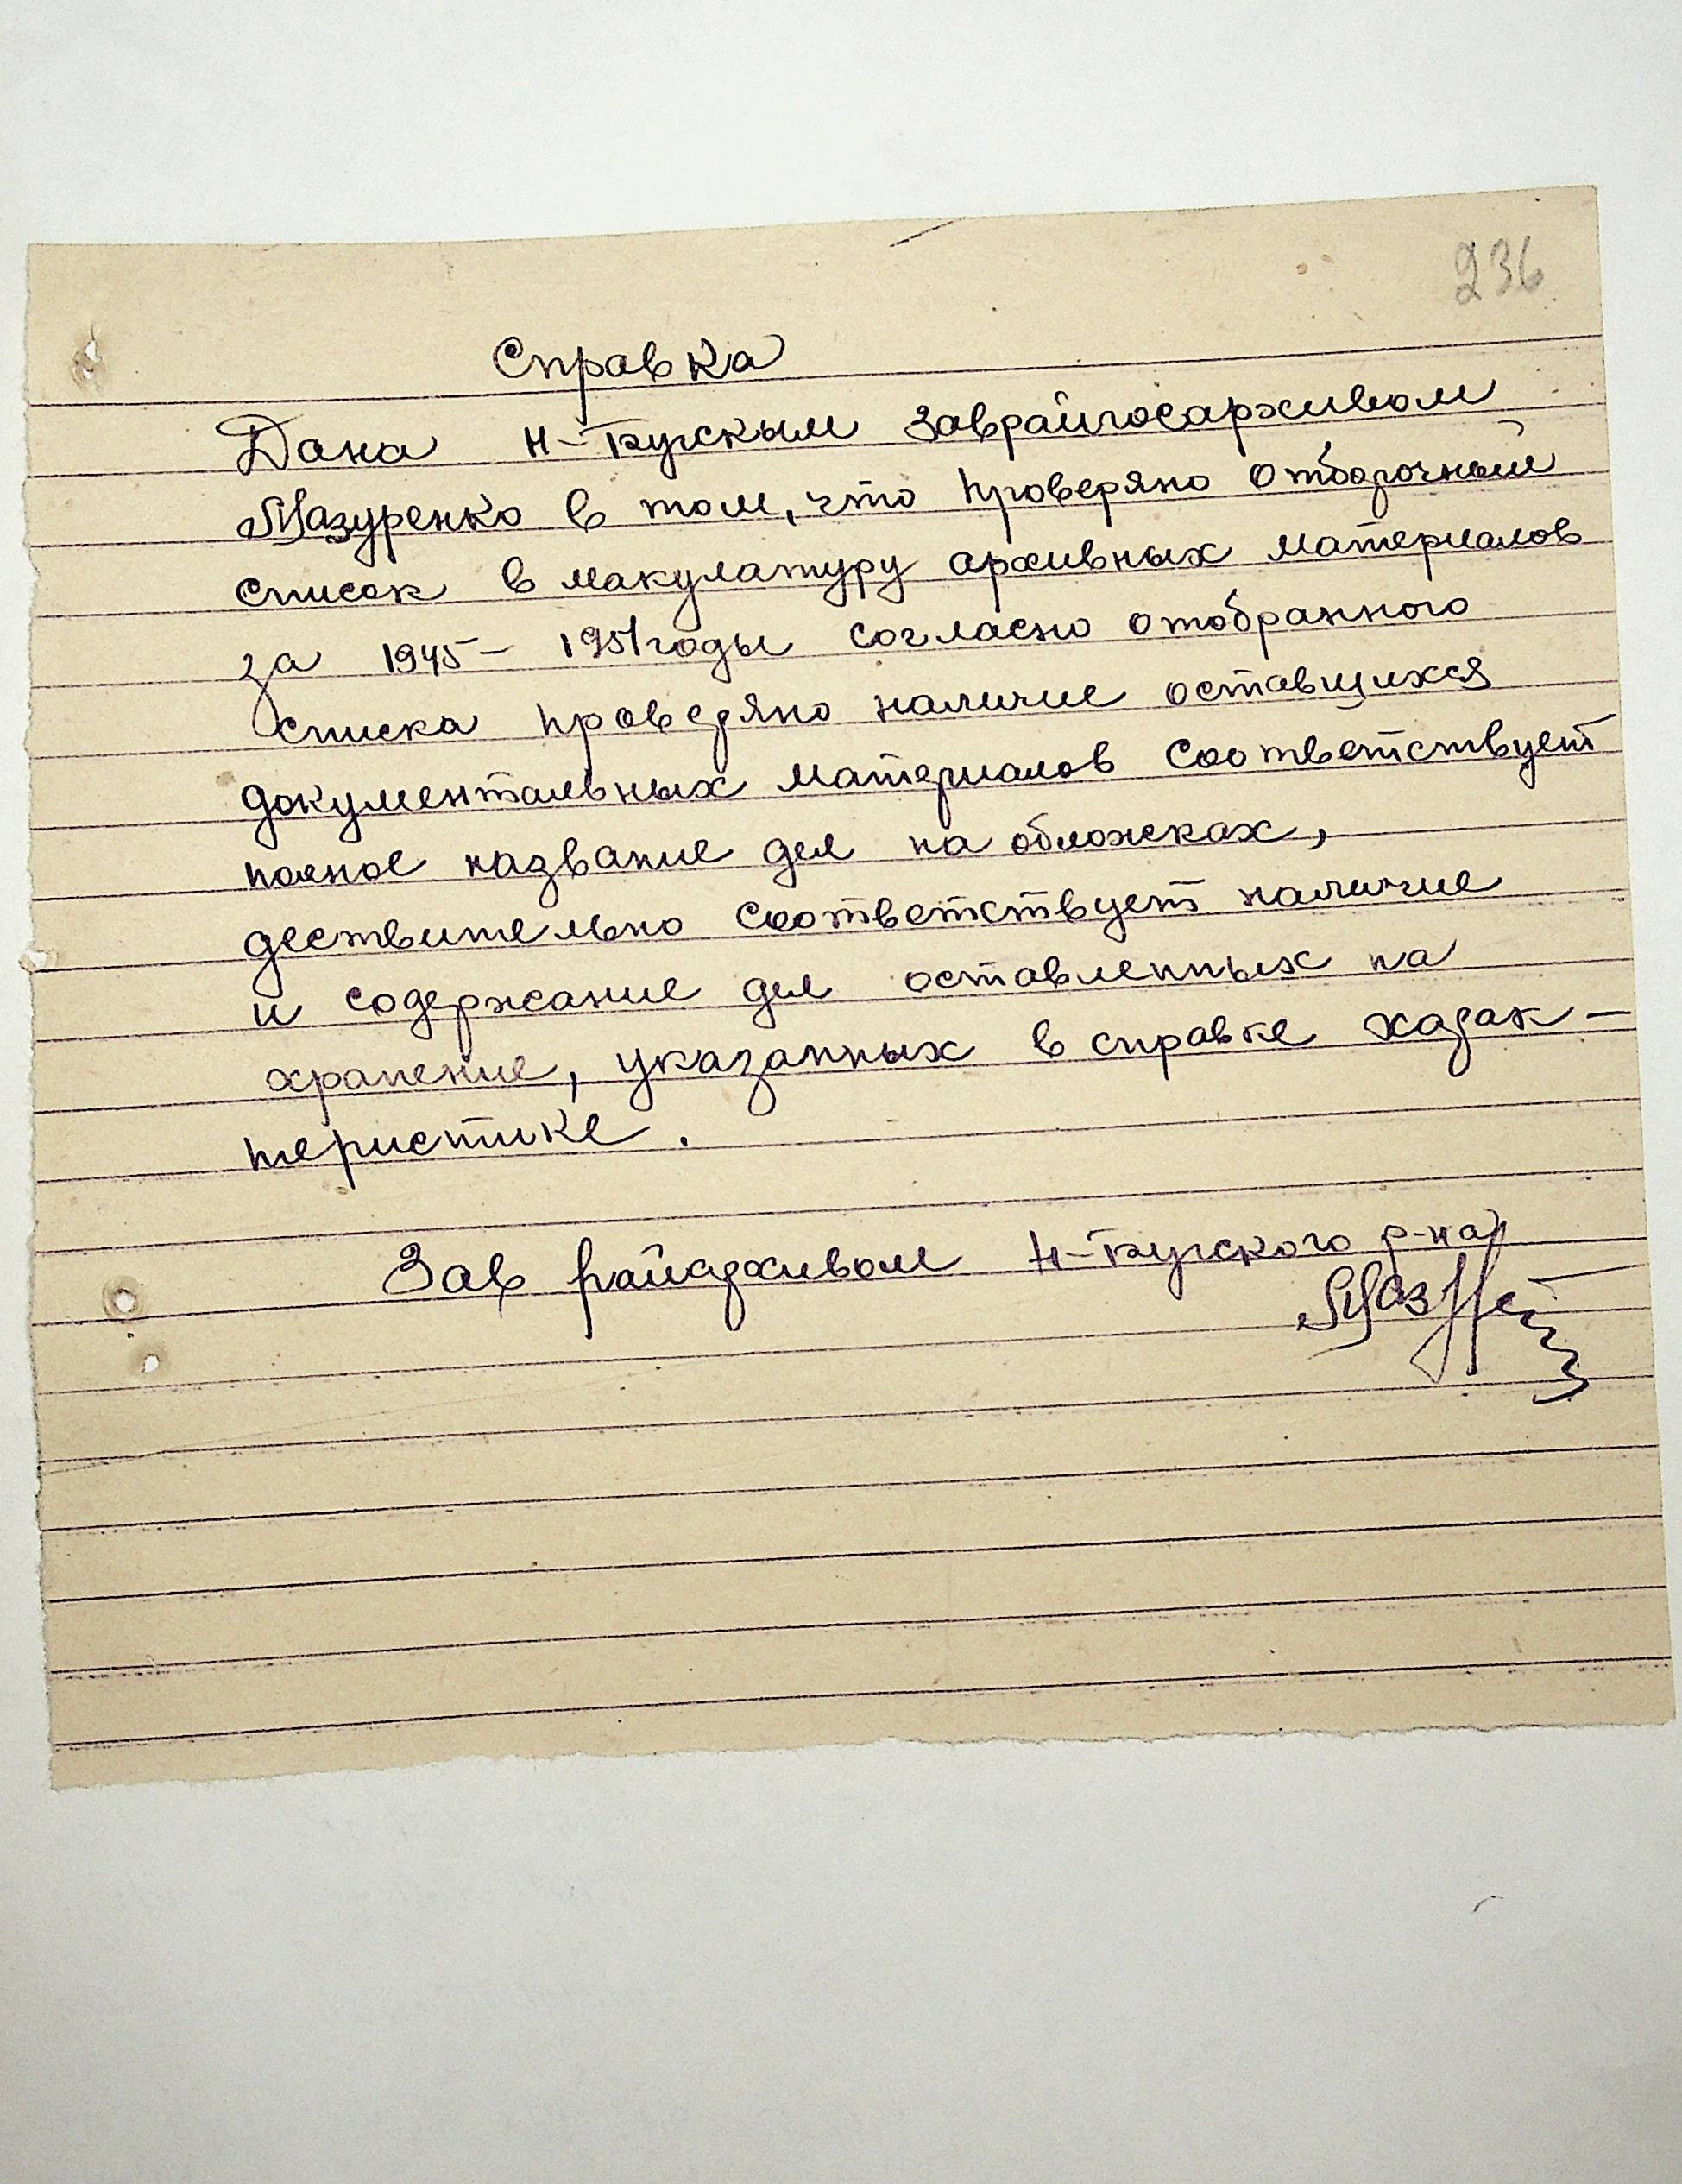 236
Справка
Дана Н-Бугскым Заврайгосархивом
Мазуренко в том, что проверяно отборочный
список в макулатуру архивных материалов
за 1945 – 1951 годы согласно отобранного
списка проверяно наличие оставшихся
документальных материалов соответствует
полное название дел на обложках,
дествительно соответствует наличие
и содержание дел оставленных на
хранение, указанных в справке харак-
теристике.
Зав райархивом Н-Бугского р-на